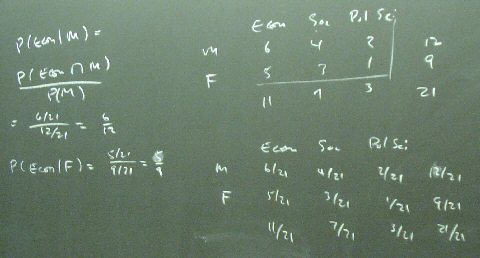 P(Econ|M) =
P(Econ ∩ M)
P(M)
= 6/21 = 6
12/21 12
P(Econ|F) = 5/21 = 5
9/21 9
Econ Soc Pol Sci
M 6 4 2 12
F 5 3 1 9
11 7 3 21
Econ Soc Pol Sci
M 6/21 4/21 2/21 12/21
F 5/21 3/21 1/21 9/21
11/21 7/21 3/21 21/21